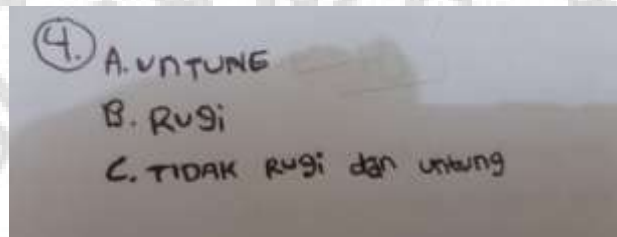 4. A. UNTUNG
B. Rugi
C. TIDAK Rugi dan untung